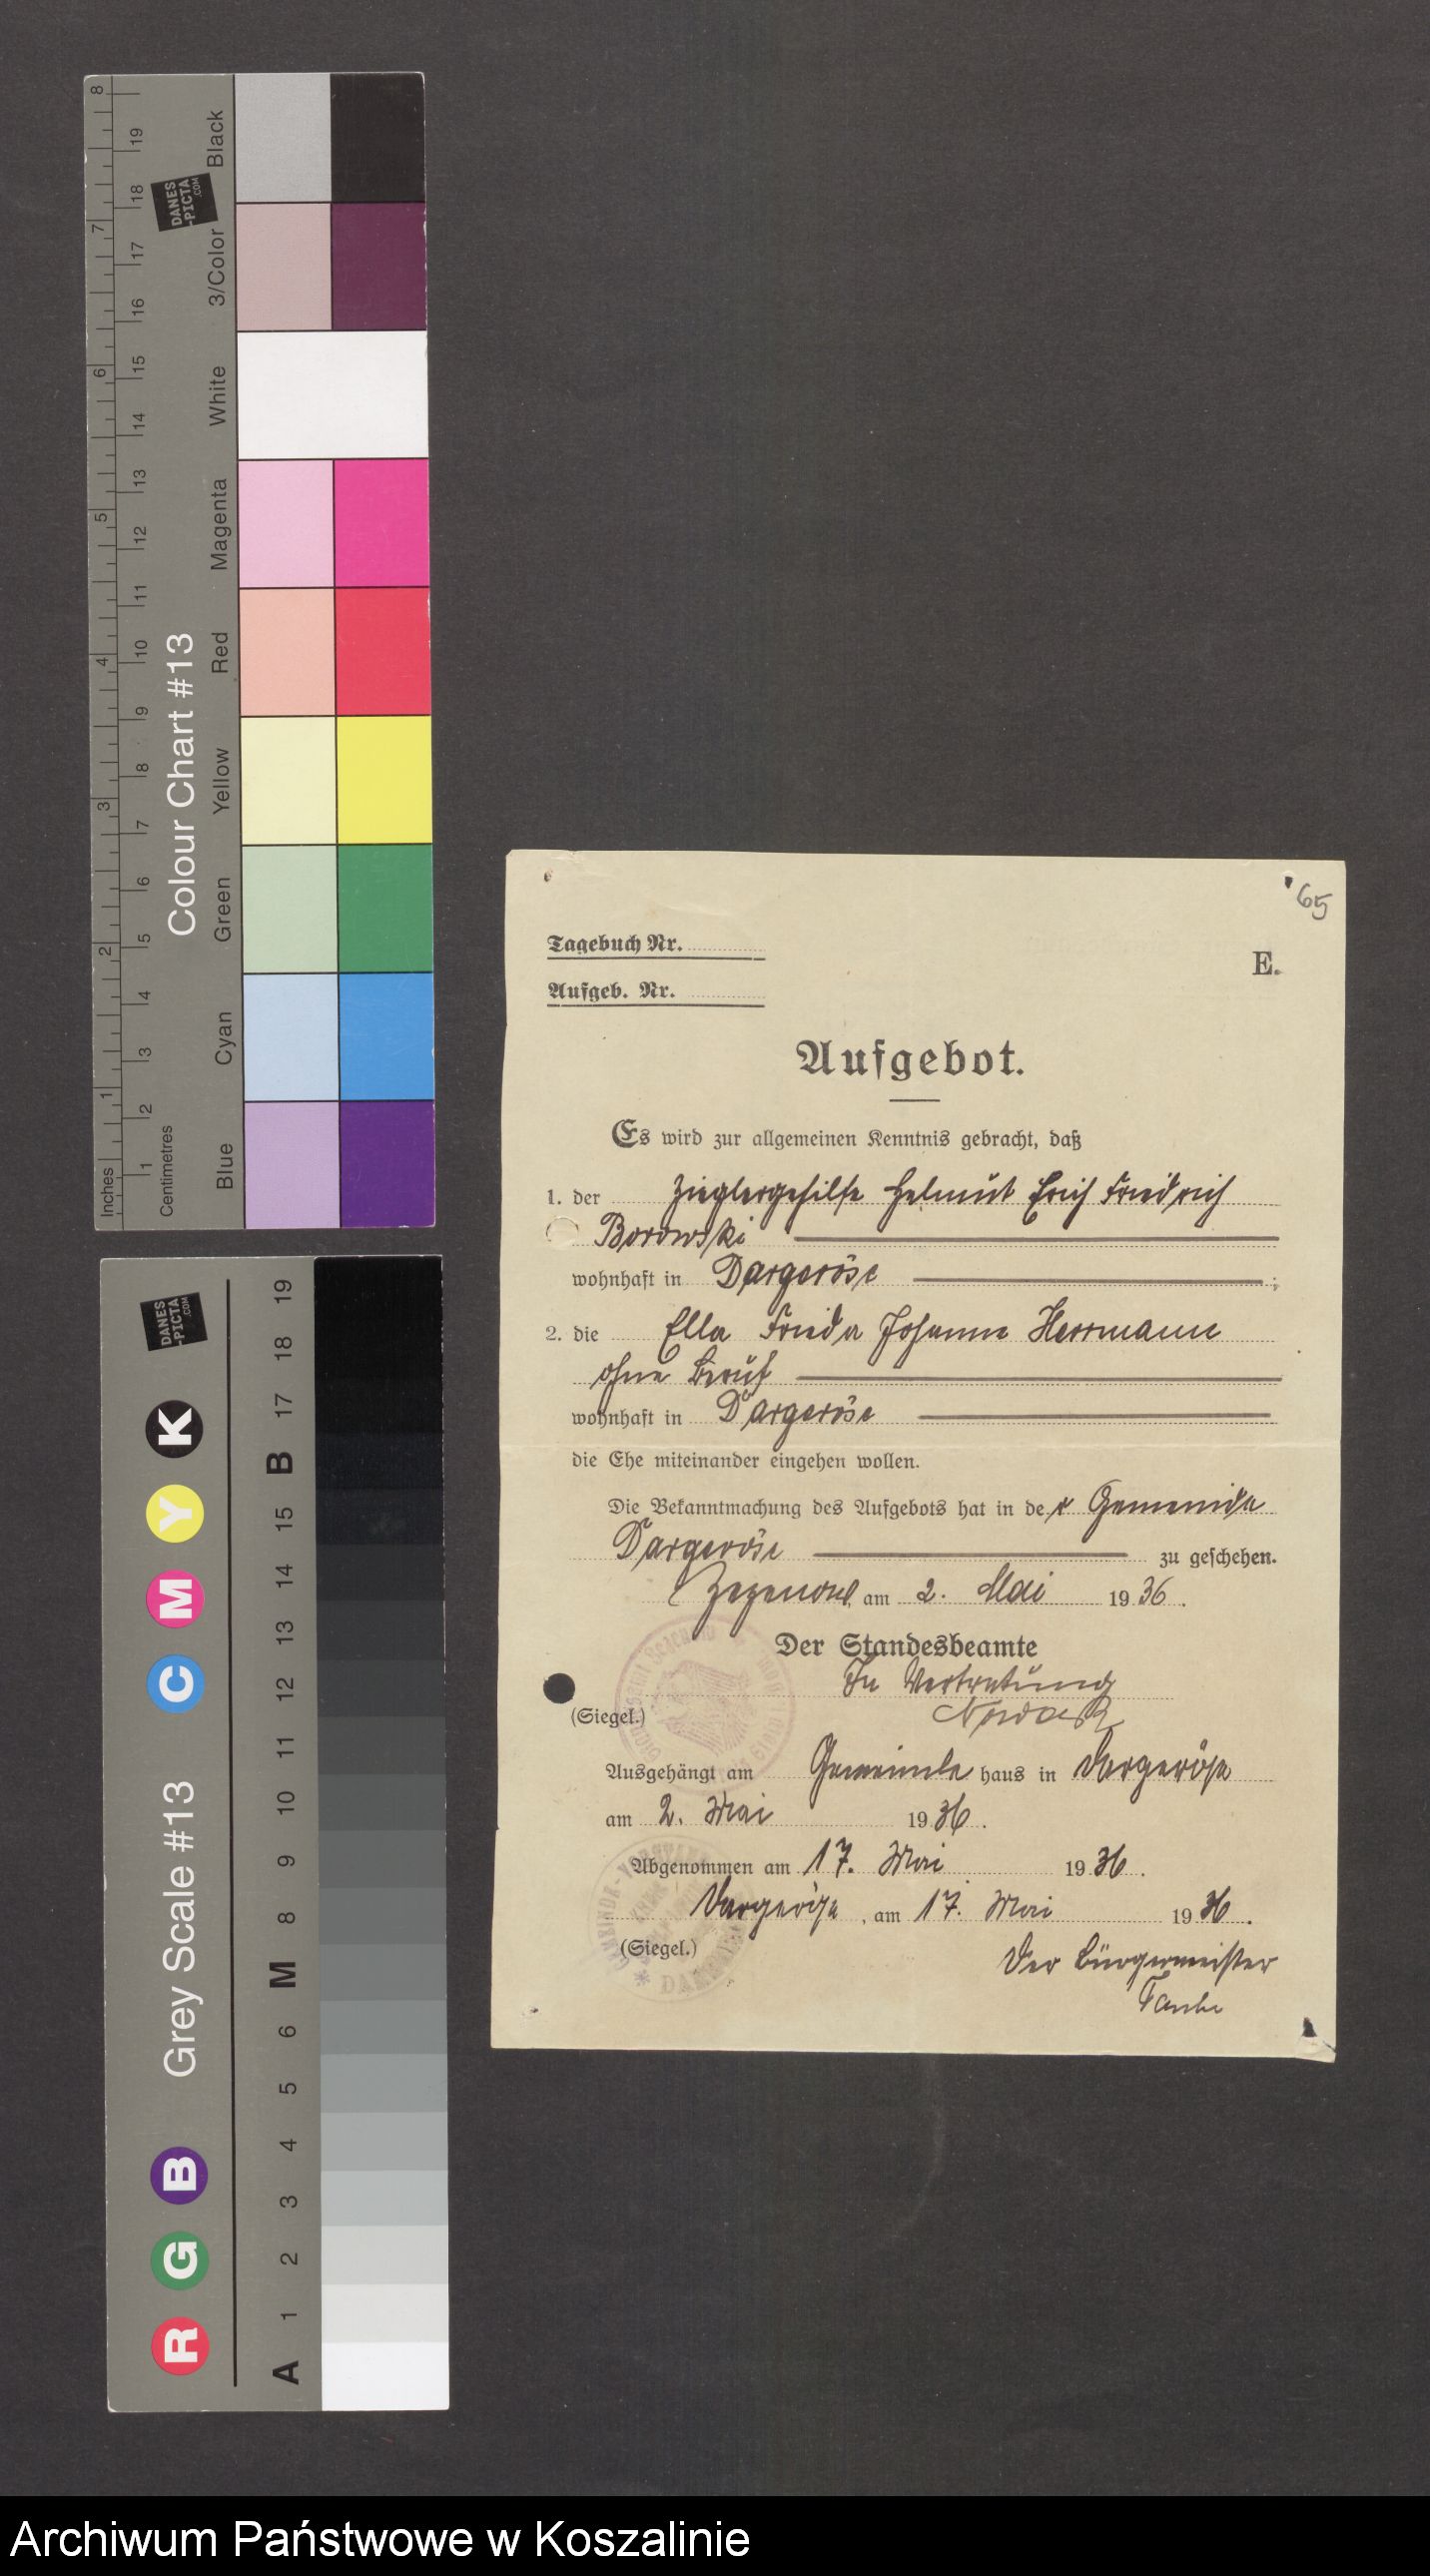 8
19
18
7
17
16
6
15
14
13
5
12
11
4
10
9
3
8
7
6
2
5
4
1
3
2
1
Inches
Centimetres
Colour Chart #13
DANES
-PICTA
.COM
Black
3/Color
White
Magenta
Red
Yellow
Green
Cyan
Blue
DANES
-PICTA
.COM
Grey Scale #13
R G B C M Y K
A 1 2 3 4 5 6 M 8 9 10 11 12 13 14 15 B 17 18 19
65
Tagebuch Nr.
E.
Aufgeb. Nr.
Aufgebot.
Es wird zur allgemeinen Kenntnis gebracht, daß
1. der Zieglergehilfe Helmut Erich Friedrich
Borowski
wohnhaft in Dargeröse ;
2. die Ella Frieda Johanne Herrmann
ohne Beruf
wohnhaft in Dargeröse
die Ehe miteinander eingehen wollen.
Die Bekanntmachung des Aufgebots hat in der Gemeinde
Dargeröse zu geschehen.
Zezenow, am 2. Mai 1936.
Der Standesbeamte
In Vertretung
(Siegel.)
Ausgehängt am Gemeinde haus in Dargeröse
am 2. Mai 1936.
Abgenommen am 17. Mai 1936.
Dargeröse, am 17. Mai 1936.
(Siegel.)
Der Bürgermeister
Archiwum Państwowe w Koszalinie